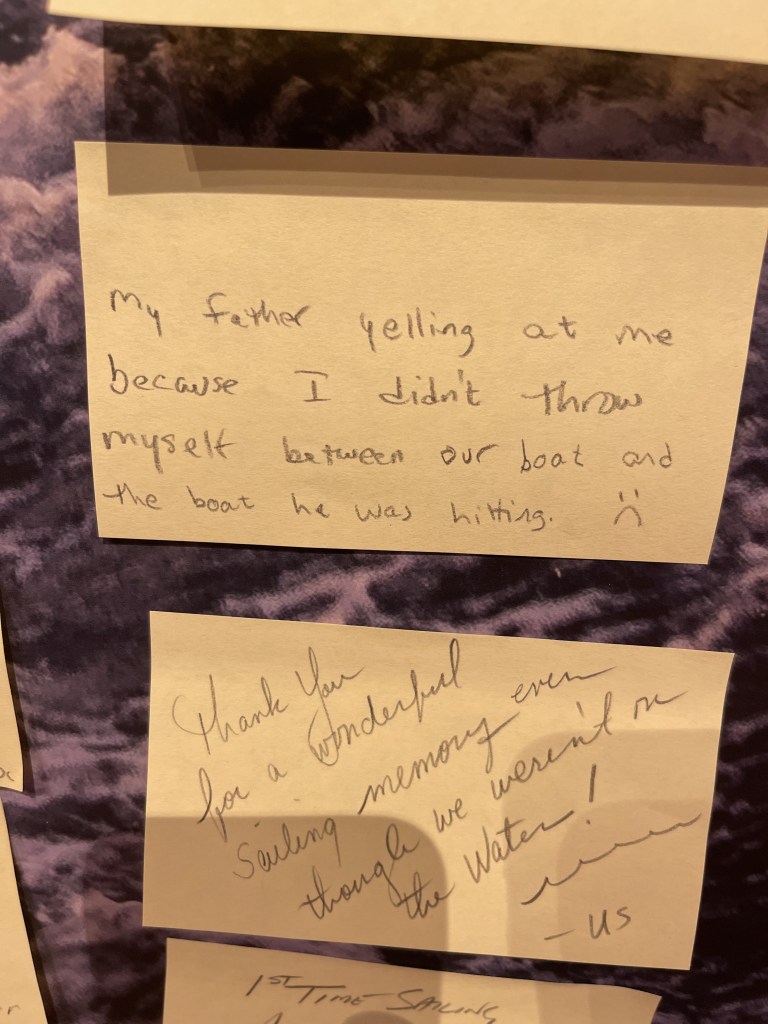 My father yelling at me
because I didn't throw
myself between our boat and
the boat he was hitting. :(
Thank You
for a wonderful
sailing memory even
though we weren't on
the Water!
- US
1ST TIME SAILING